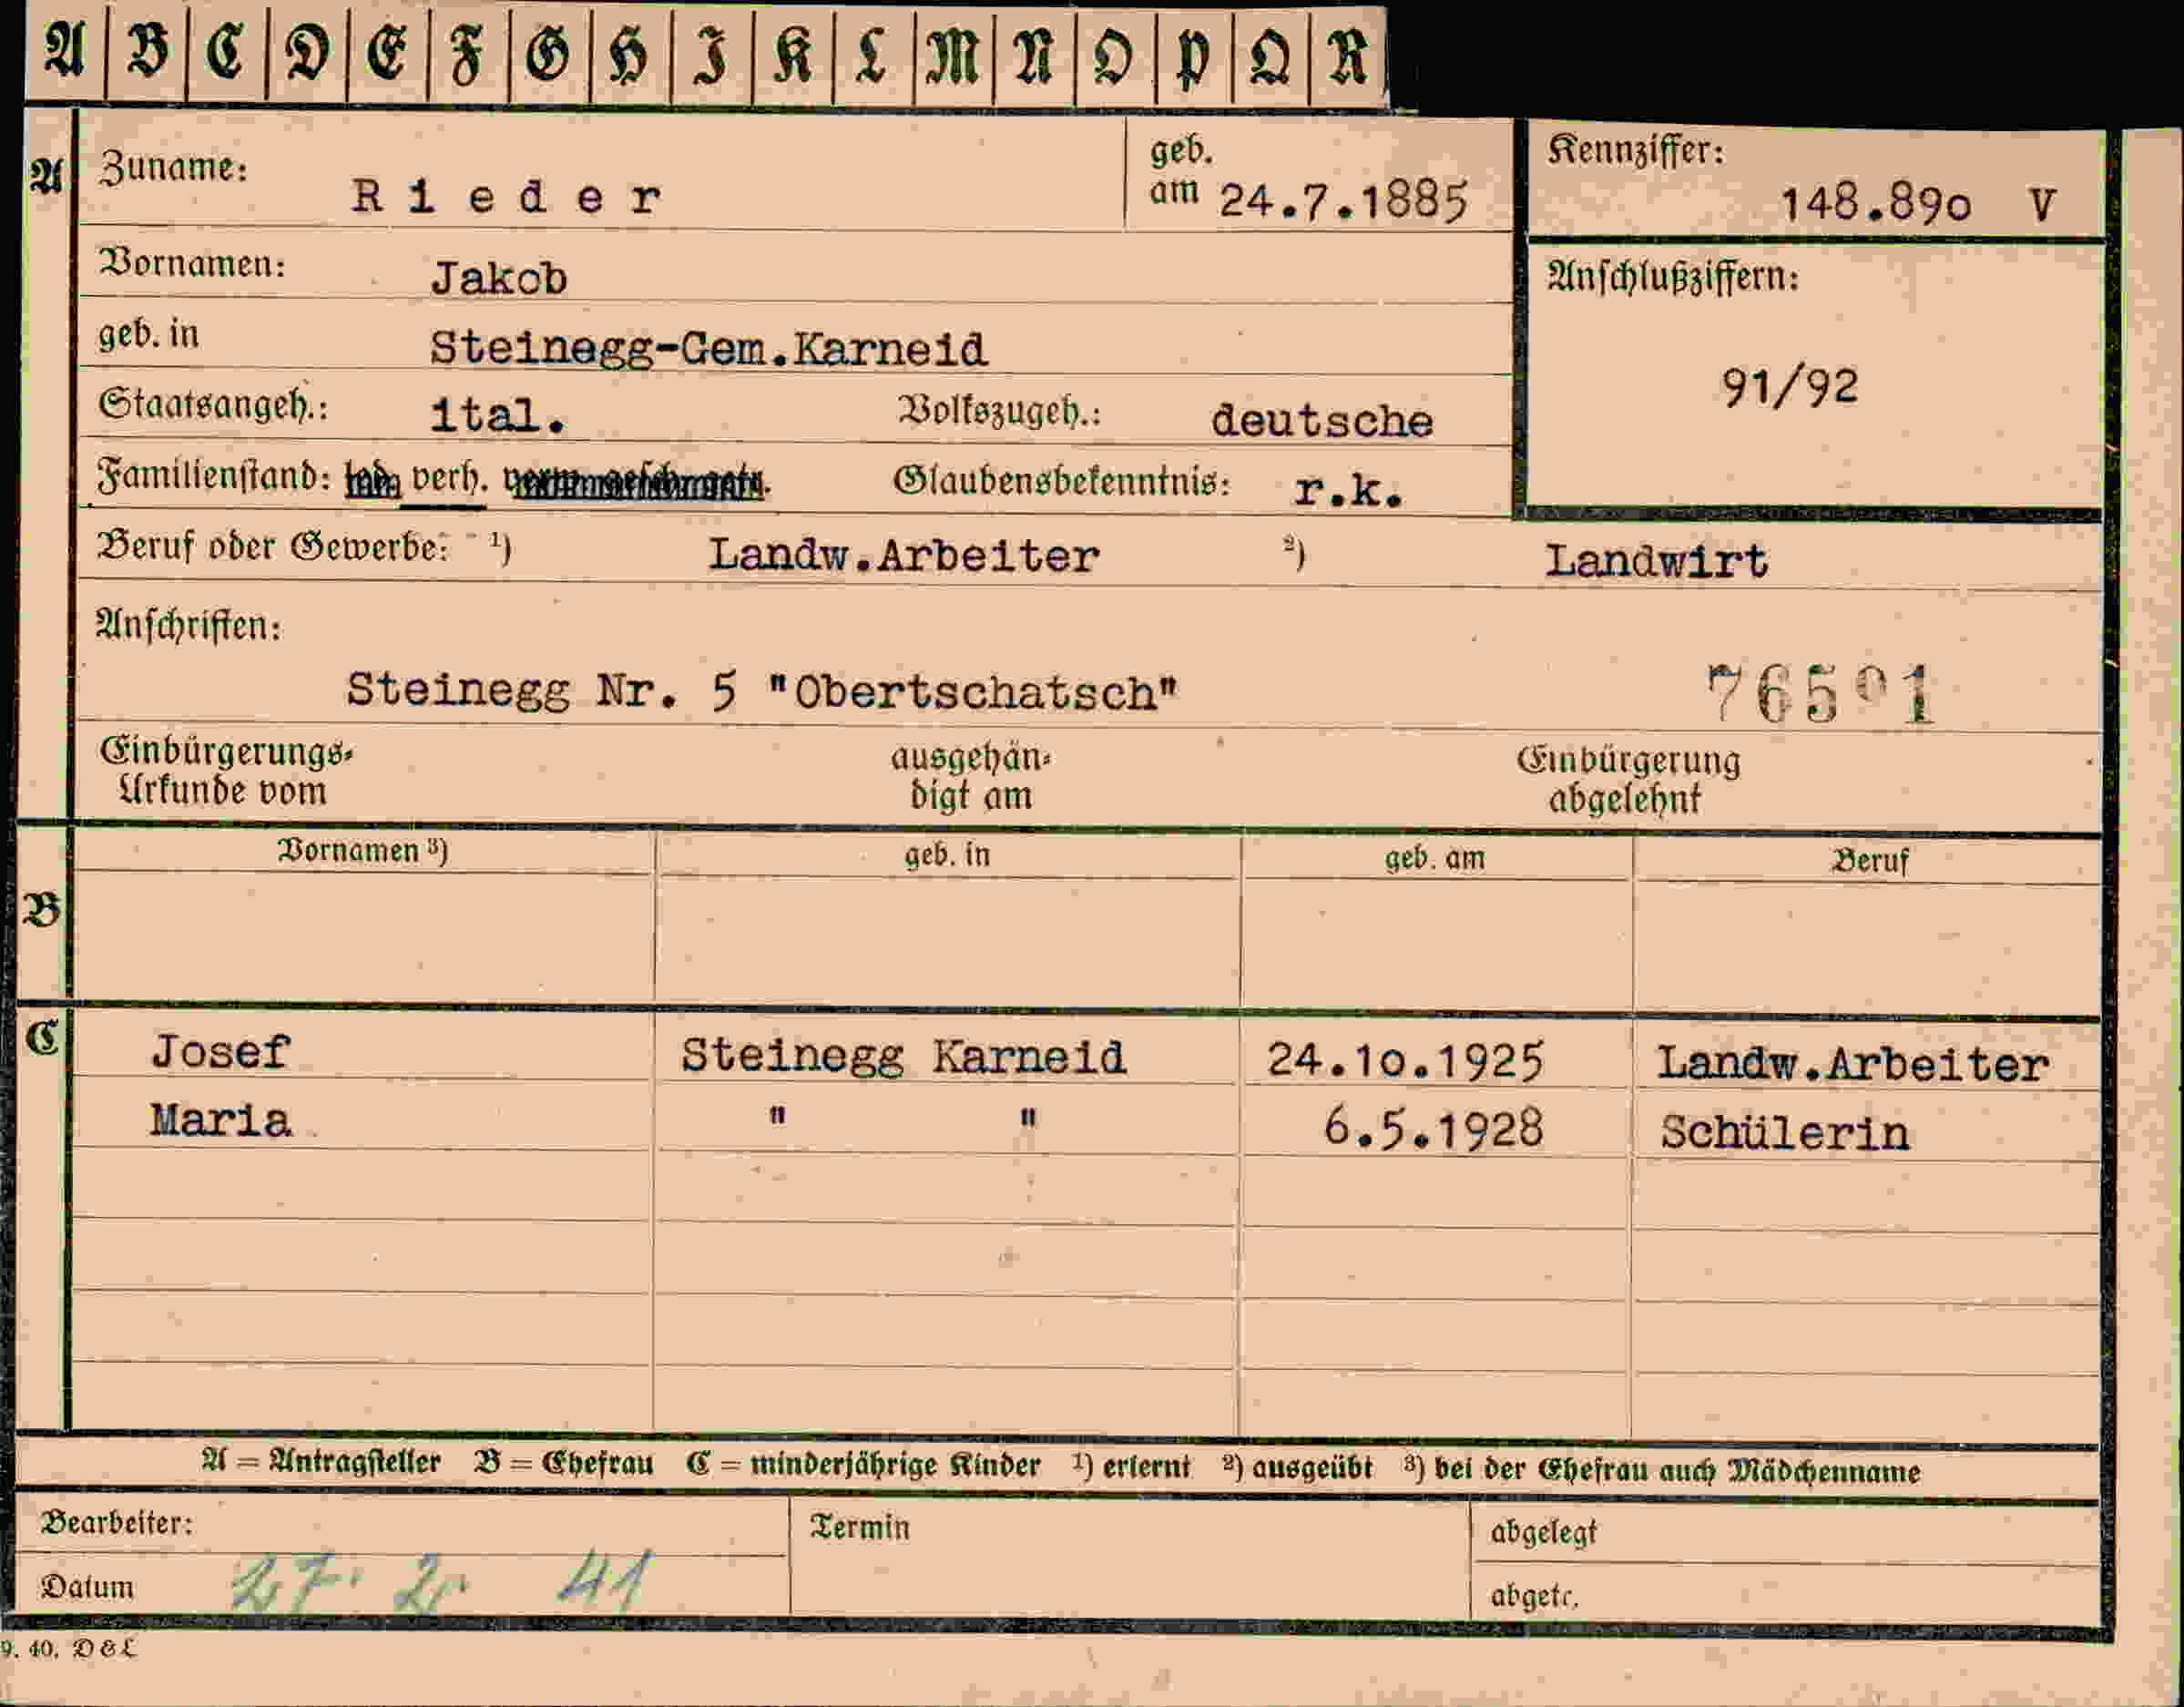 A B C D E F G H I K L M N O P Q R
A Zuname: Rieder geb. am 24.7.1885 Kennziffer: 148.890 V
Vornamen: Jakob Anschlußziffern:
geb. in Steinegg-Gem.Karneid 91/92
Staatsangeh.: ital. Volkszugeh.: deutsche
Familienstand: verh. Glaubensbekenntnis: r.k.
Beruf oder Gewerbe: 1) Landw.Arbeiter 2) Landwirt
Anschriften:
Steinegg Nr. 5 "Obertschatsch" 76501
Einbürgerungs- ausgehän- Einbürgerung
Urkunde vom digt am abgelehnt
Vornamen 3) geb. in geb. am Beruf
B
C Josef Steinegg Karneid 24.10.1925 Landw.Arbeiter
Maria " " 6.5.1928 Schülerin
A = Antragsteller B = Ehefrau C = minderjährige Kinder 1) erlernt 2) ausgeübt 3) bei der Ehefrau auch Mädchenname
Bearbeiter: Termin abgelegt
Datum 27. 2. 41 abgetr.
9. 40. D & L